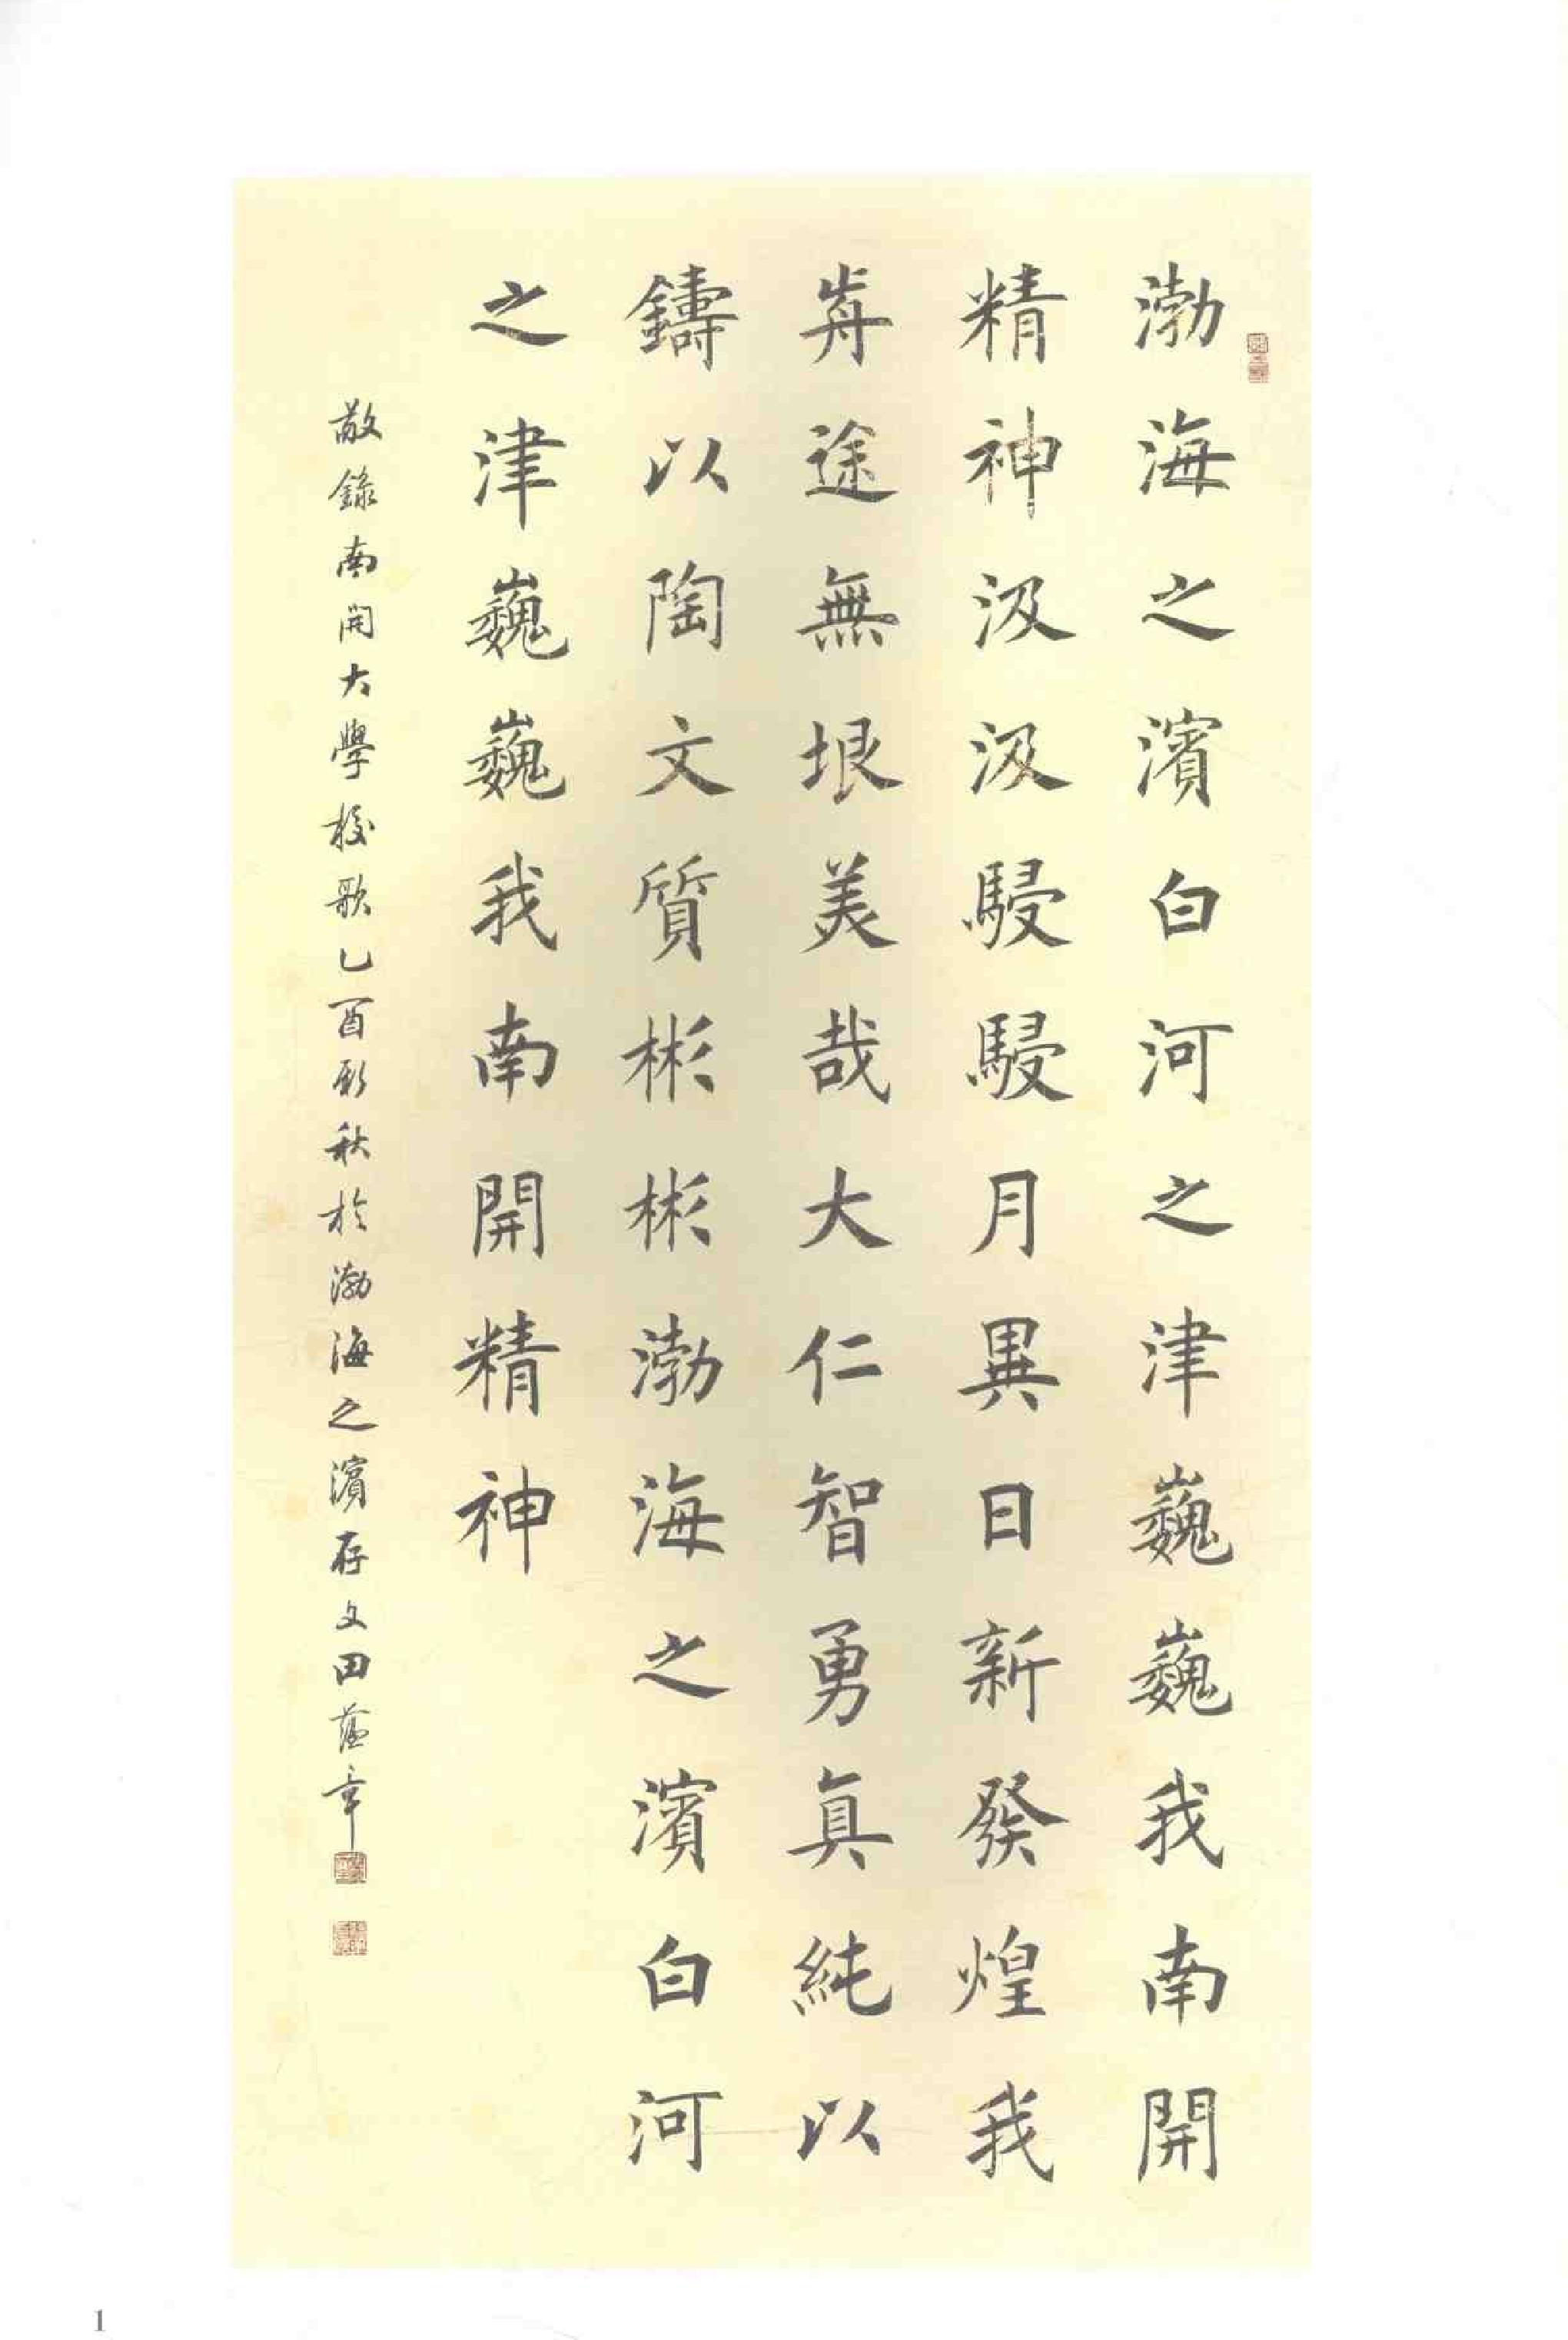 渤海之濱白河之津巍巍我南開
精神汲汲駸駸月異日新發煌我
歬途無垠美哉大仁智勇真純以
鑄以陶文質彬彬渤海之濱白河
之津巍巍我南開精神
敬錄南開大學校歌乙酉新秋於渤海之濱存文田蘊章
1